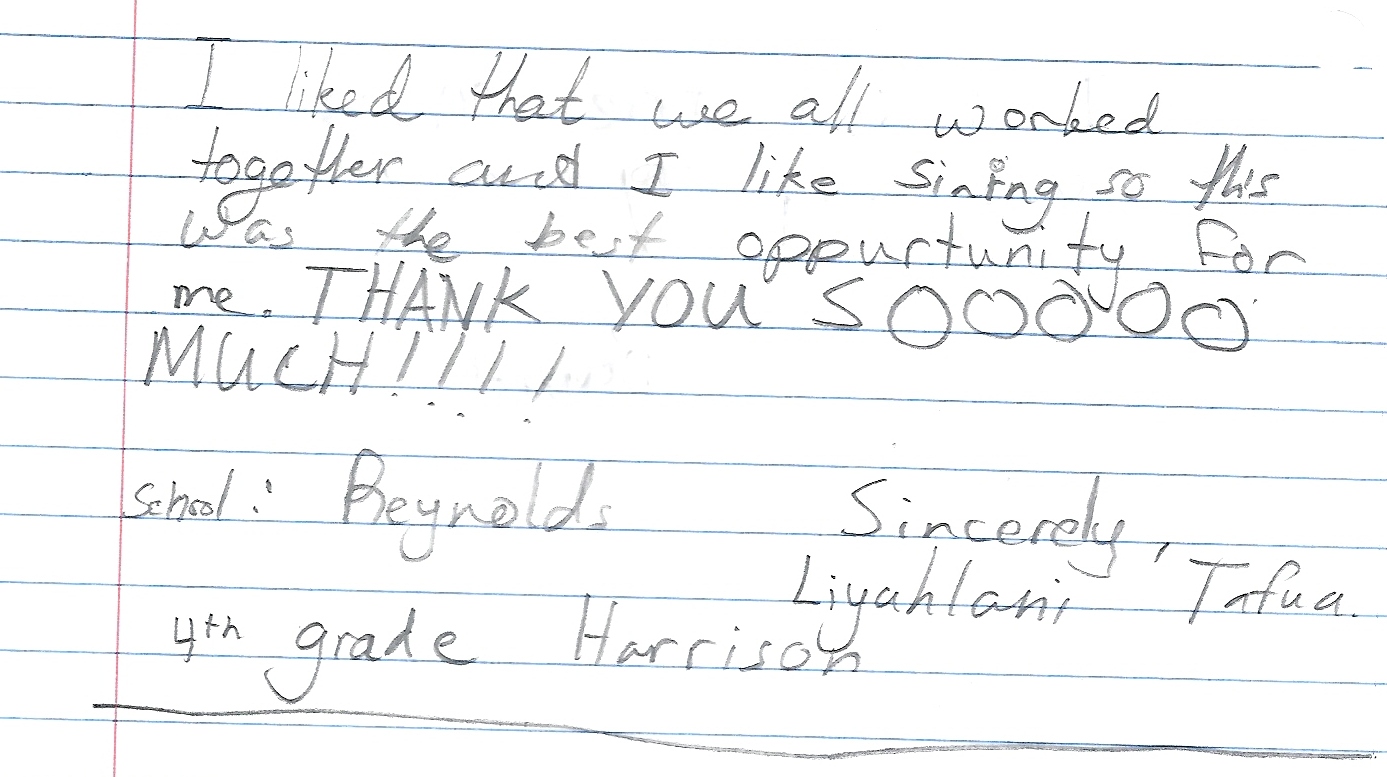 I liked that we all worked
together and I like sining so this
was the best oppurtunity for
me. THANK YOU SOOOOO
MUCH!!!!!
School: Reynolds Sincerely,
Liyahlani Tafua.
4th grade Harrison